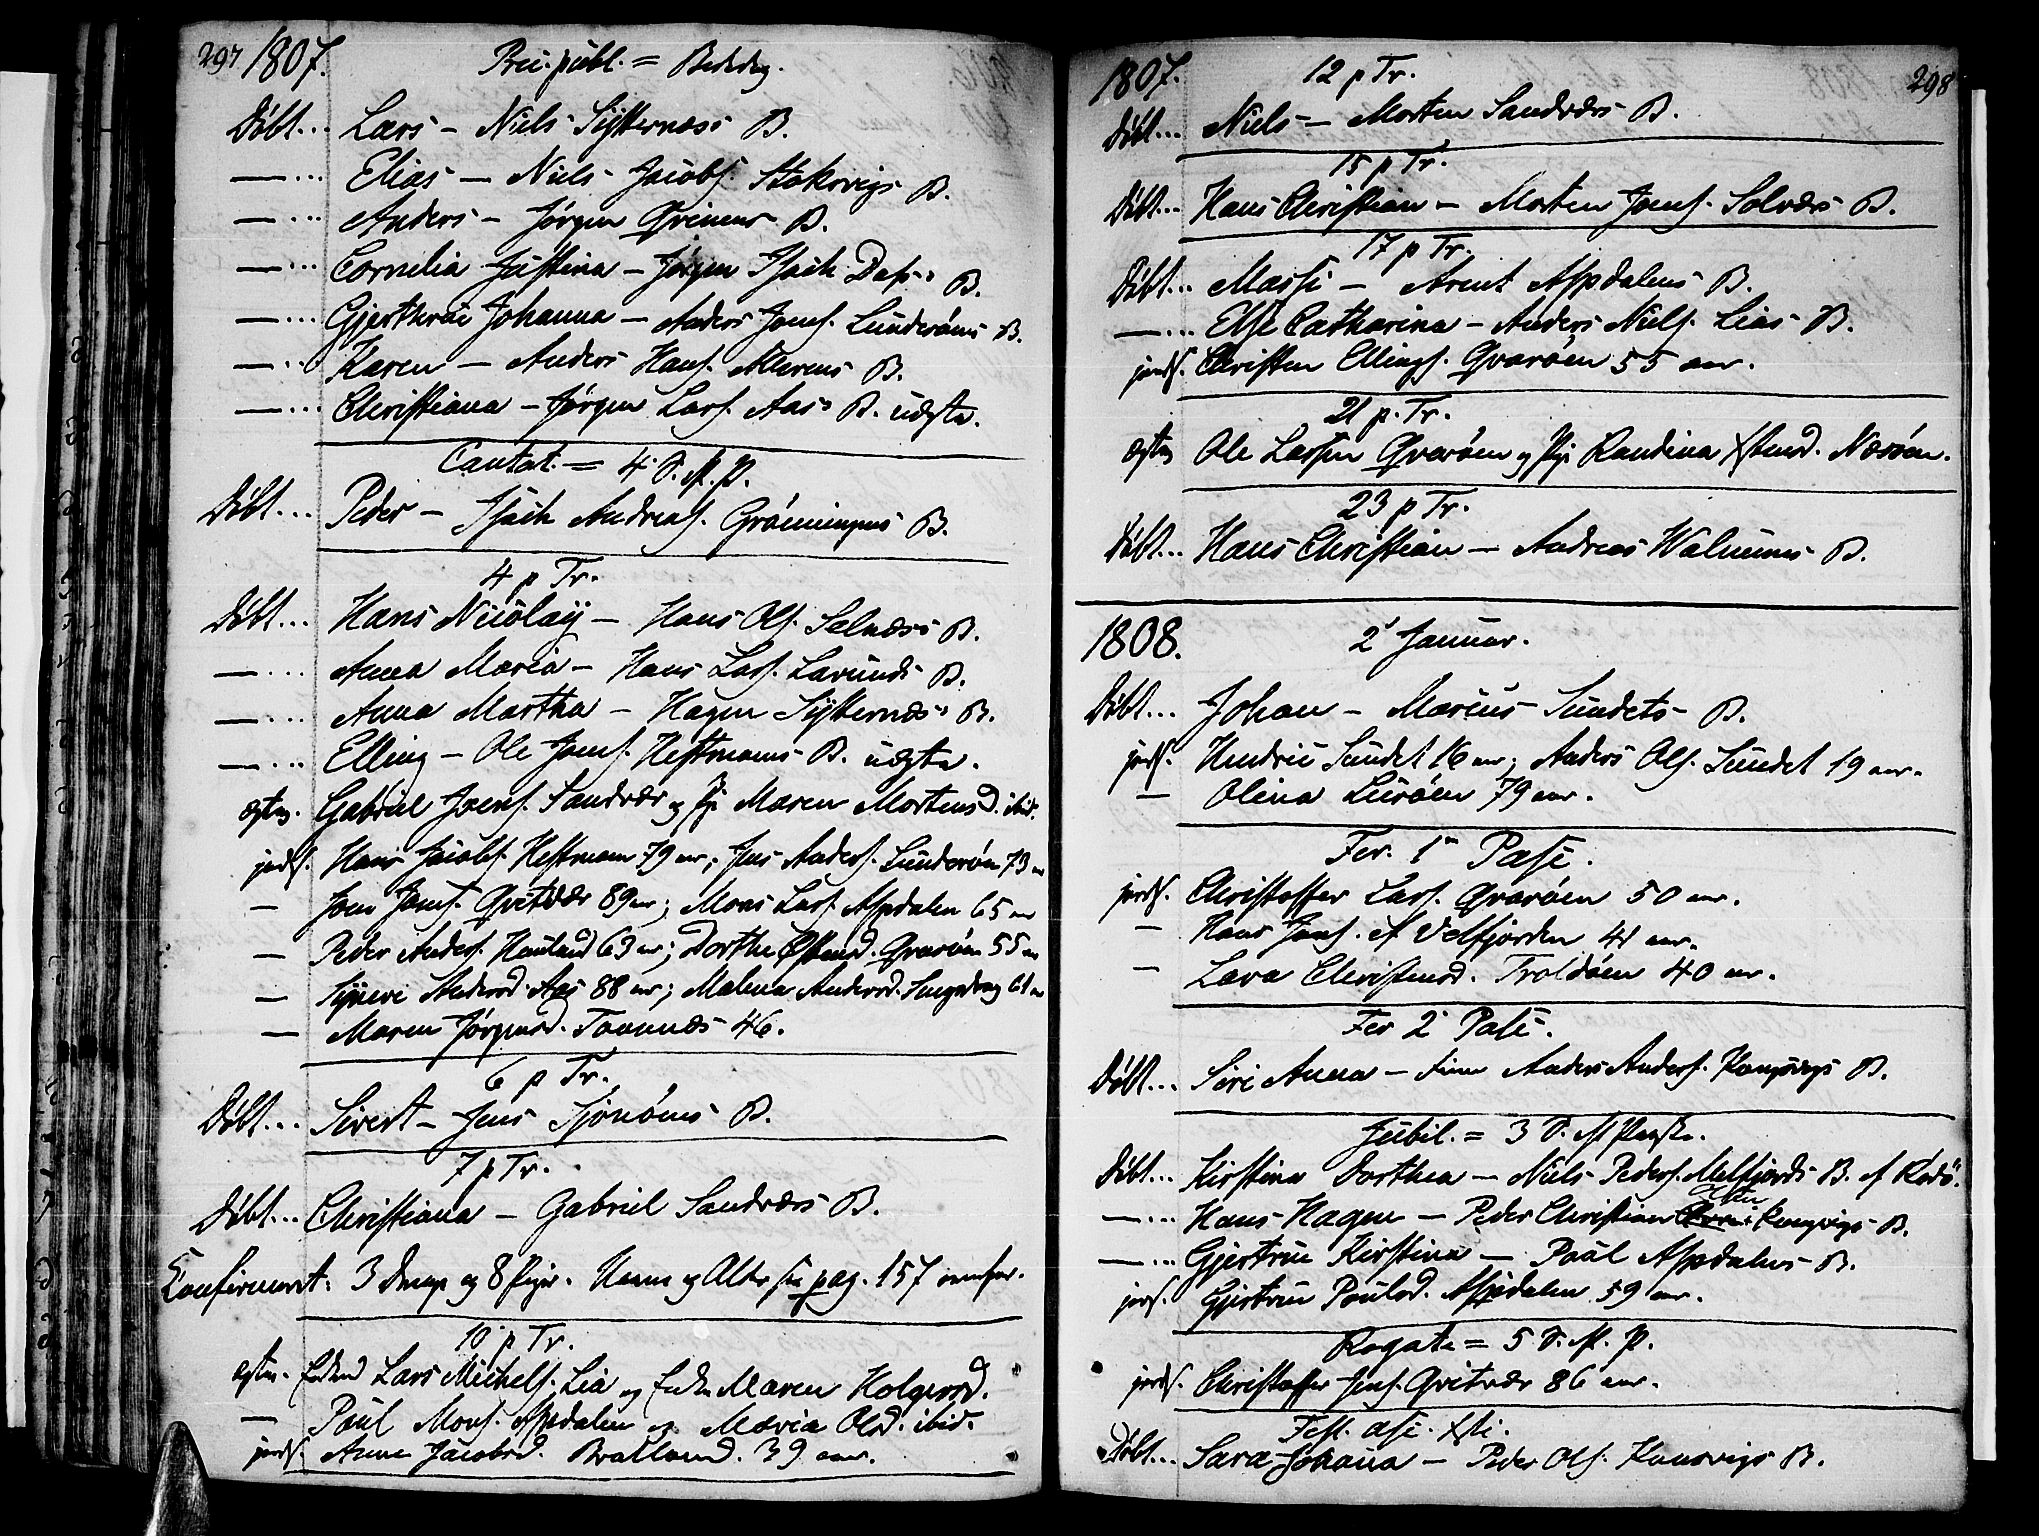 297 1807. Præ. publ. = Bededag.
Döbt... Lars – Niels Sÿtternæss B.
— ... Elias – Niels Jacobs. Stokvigs B.
— ... Anders – Jörgen Qvinnes B.
— ... Cornelia Justina – Jörgen Isach Dass B.
— ... Gjerthrue Johanna – Anders Jons. Lunderöens B.
— ... Karen – Anders Hans. Alderens B.
— ... Christiana – Jörgen Lars. Aas B. udgte.
Cantat. = 4 S. M. P.
Döbt... Peder – Isach Andreas. Grönningens B.
4 p Tr.
Döbt... Hans Nicolaÿ – Hans Ols. Selnæss B.
— ... Anna Maria – Hans Lars. Lovunds B.
— ... Anna Martha – Hagen Sÿtternæss B.
— ... Elling – Ole Jons. Hestmans B. uægte.
ægtev. Gabriel Jons. Sandvær og Pige Maren Mortensd. ibid.
jords. Hans Jacobs. Hestmann 79 aar; Jens Anders. Lunderöen 73 aar
— Jone Jons. Qvitvær 89 aar; Mons Lars. Aspdalen 65 aar
— Peder Anders. Haulund 63 aar; Dorthe Ostensd. Qvaröen 55 aar
— Sÿnevi Andersd. Aas 88 aar; Malena Andersd. 61 aar
— Maren Jörgensd. Tonnæs 46.
6 p Tr.
Döbt... Sivert – Jens Sjonöens B.
7 p Tr.
Döbt... Christiana – Gabriel Sandværs B.
Confirmeret: 3 Drenge og 8 Piger. Navne og Alder see pag. 157 ovenfor.
10 p Tr.
ægtev. Enkem Lars Michels. Lia og Enken Maren Holgersd.
— Paul Mons. Aspdalen og Maria Olsd. ibid.
jords. Anne Jacobsd. Bratland. 39 aar.
1807. 12 p Tr. 298
Döbt... Niels – Morten Sandværs B.
15 p Tr.
Döbt... Hans Christian – Morten Jons. Solværs B.
17 p Tr.
Döbt... Massi – Arent Aspdalens B.
— ... Else Catharina – Anders Niels. Lias B.
jords. Christen Ellings. Qvaröen 55 aar.
21 p. Tr.
ægtev. Ole Larsen Qvaröen og Pige Randina Xstensd. Næsöen.
23 p Tr.
Döbt... Hans Christian – Andreas Walnums B.
1808. 2 Januar.
Döbt... Johan – Marius Sundets B.
jords. Hendric Sundet 16 aar; Anders Ols. Sundet 19 aar.
— Olina Luröen 79 aar.
Fer. 1 Pasc.
jords. Christoffer Lars. Qvaröen 50 aar.
— Hans Jons. af Velfjorden 41 aar.
— Lava Christensd. Troldöen 40 aar.
Fer 2 Pasc.
Döbt... Siri Anna – Finn Anders Anders. Kongsvigs B.
Jubil. = 3 S. M Paaske.
Döbt... Kirstina Dorthea – Niels Peders. Melfjords B. af Rödö.
— ... Hans Hagen – Peder Christian Kongsvigs B.
— ... Gjertrue Kirstina – Paul Aspdalens B.
jords. Gjertrue Poulsd. Aspdalen 59 aar.
Rogate = 5 S. M. P.
jords. Christoffer Jens. Qvitvær 86 aar.
Fest. asc. Xsti.
Döbt... Sara Johana – Peder Ols. Konsvigs B.